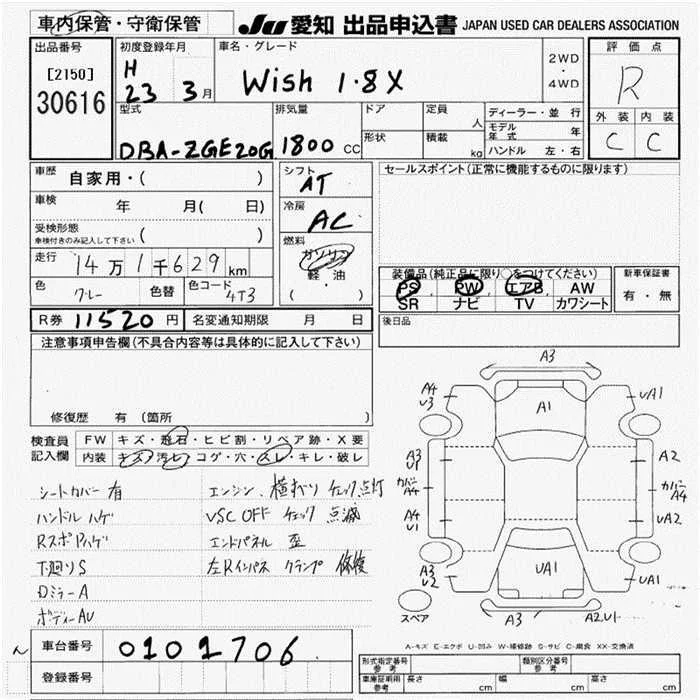 車内保管・守衛保管 JU 愛知 出品申込書 JAPAN USED CAR DEALERS ASSOCIATION
出品番号 初度登録年月 車名・グレード 評価点
[2150] H 2WD
30616 23 3月 Wish 1.8X ・ R
4WD
型式 排気量 ドア 定員 人 ディーラー・並 行 外装 内装
モデル年式 年 C C
DBA-ZGE20G 1800 CC 形状 積載 kg ハンドル 左・右
車歴 自家用・( ) シフト AT セールスポイント(正常に機能するものに限ります)
車検 年 月( 日) 冷房 AC
受検形態 ( )
車検付きのみ記入して下さい
燃料 ガソリン
走行 14万1千629km 軽・油 装備品(純正品に限り○をつけてください) 新車保証書
色 グレー 色替 色コード 4T3 ( ・ ) PS PW エアB AW 有・無
SR ナビ TV カワシート
R券 11520円 名変通知期限 月 日 後日品
注意事項申告欄(不具合内容等は具体的に記入して下さい)
修復歴 有(箇所
検査員 FW キズ・飛石・ヒビ割・リペア跡・X要
記入欄 内装 キズ・汚レ・コゲ・穴・スレ・キレ・破レ
シートカバー有 エンジン、横すべり チェック点灯
ハンドルハゲ VSC OFF チェック 点滅
RスポPハゲ エンドパネル 歪
下廻りS 左Rインパネ クランプ 修復
Dミラー A
ボディーAU
A3
A4 U3 A1 UA1
A3 U1 A2
カバー A4 カバー A4
A4 U1 UA2
A3 U2 UA1 UA1
スペア A3 A2U1
A-キズ E-エクボ U-凹み W-補修跡 S-サビ C-腐食 XX-交換済
車台番号 0101706
登録番号
形式指定番号 参考 類別区分番号 参考
車庫証明用 参考 長さ cm 幅 cm 高さ cm